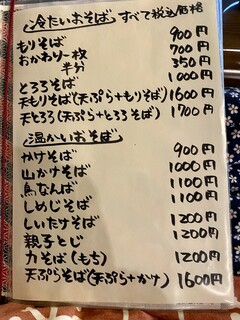 冷たいおそば すべて税込価格
もりそば 900円
おかわり一枚 700円
半分 350円
とろろそば 1000円
天もりそば(天ぷら+もりそば) 1600円
天とろろ(天ぷら+とろろそば) 1700円
温かいおそば
かけそば 900円
山かけそば 1000円
鳥なんば 1100円
しめじそば 1100円
しいたけそば 1200円
親子とじ 1200円
力そば(もち) 1200円
天ぷらそば(天ぷら+かけ) 1600円